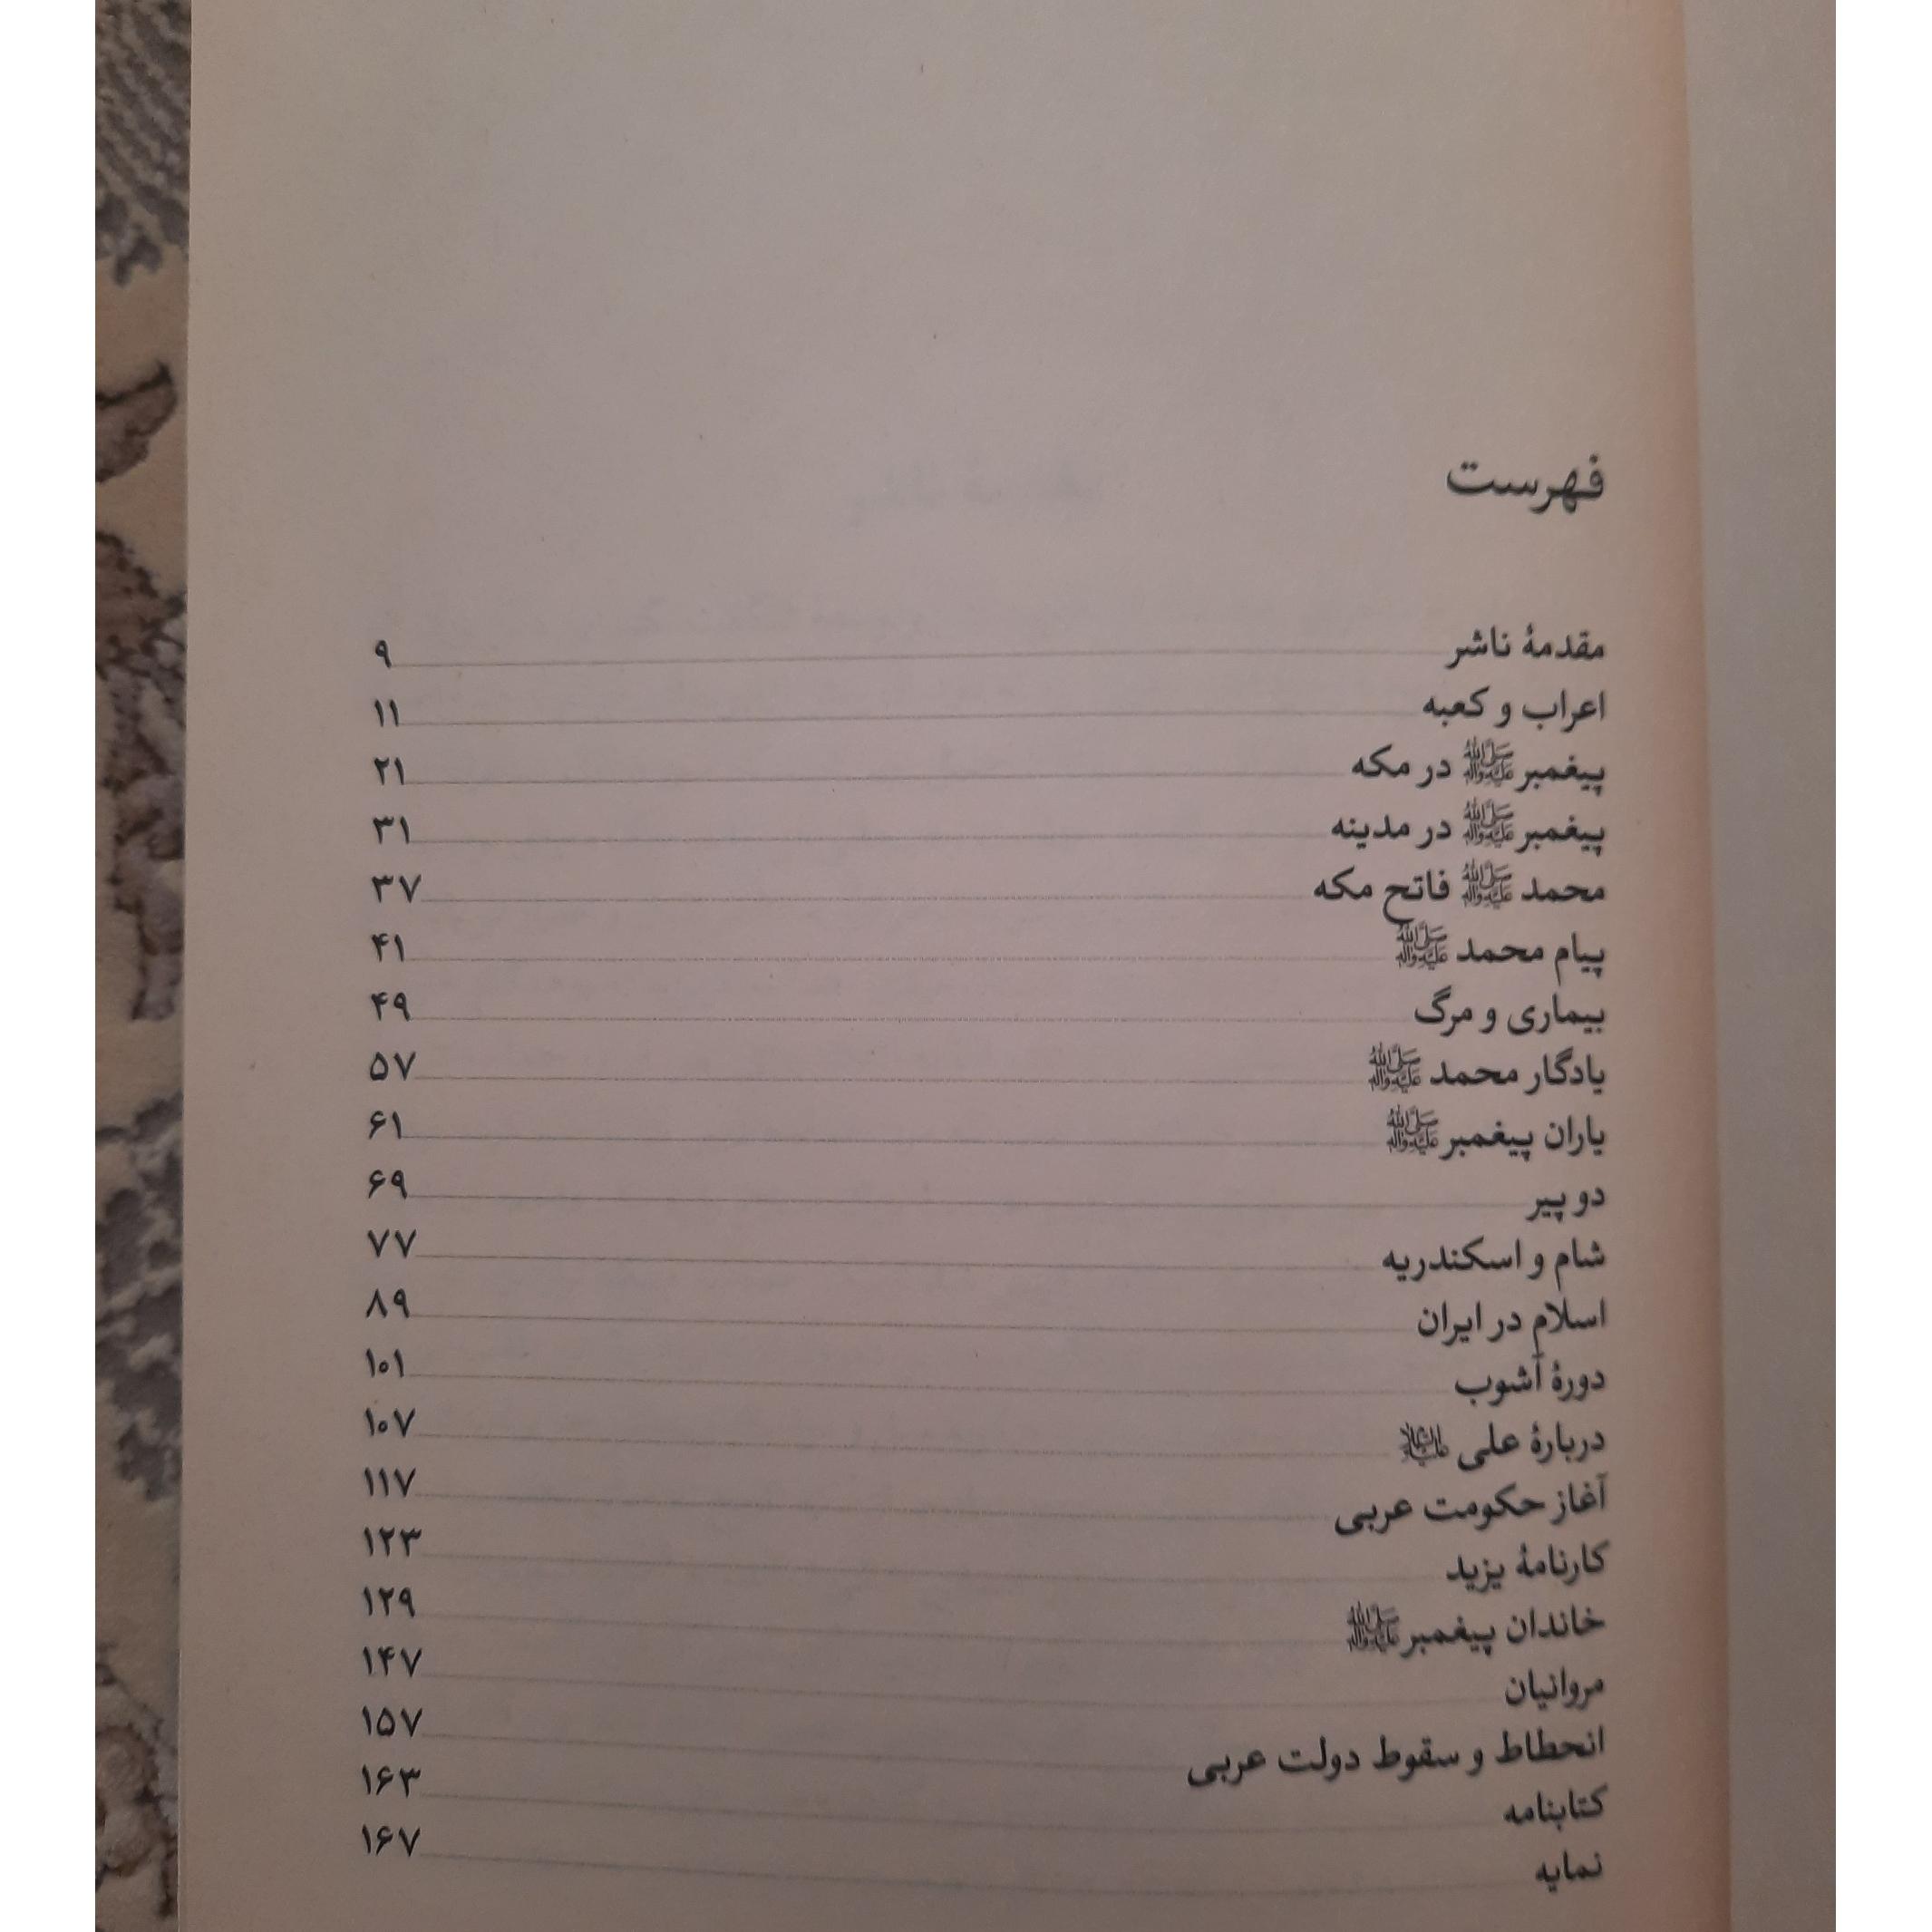 فهرست
مقدمهٔ ناشر ۹
اعراب و کعبه ۱۱
پیغمبر ﷺ در مکه ۲۱
پیغمبر ﷺ در مدینه ۳۱
محمد ﷺ فاتح مکه ۳۷
پیام محمد ﷺ ۴۱
بیماری و مرگ ۴۹
یادگار محمد ﷺ ۵۷
یاران پیغمبر ﷺ ۶۱
دو پیر ۶۹
شام و اسکندریه ۷۷
اسلام در ایران ۸۹
دورهٔ آشوب ۱۰۱
دربارهٔ علی علیه‌السلام ۱۰۷
آغاز حکومت عربی ۱۱۷
کارنامهٔ یزید ۱۲۳
خاندان پیغمبر ﷺ ۱۲۹
مروانیان ۱۴۷
انحطاط و سقوط دولت عربی ۱۵۷
کتابنامه ۱۶۳
نمایه ۱۶۷